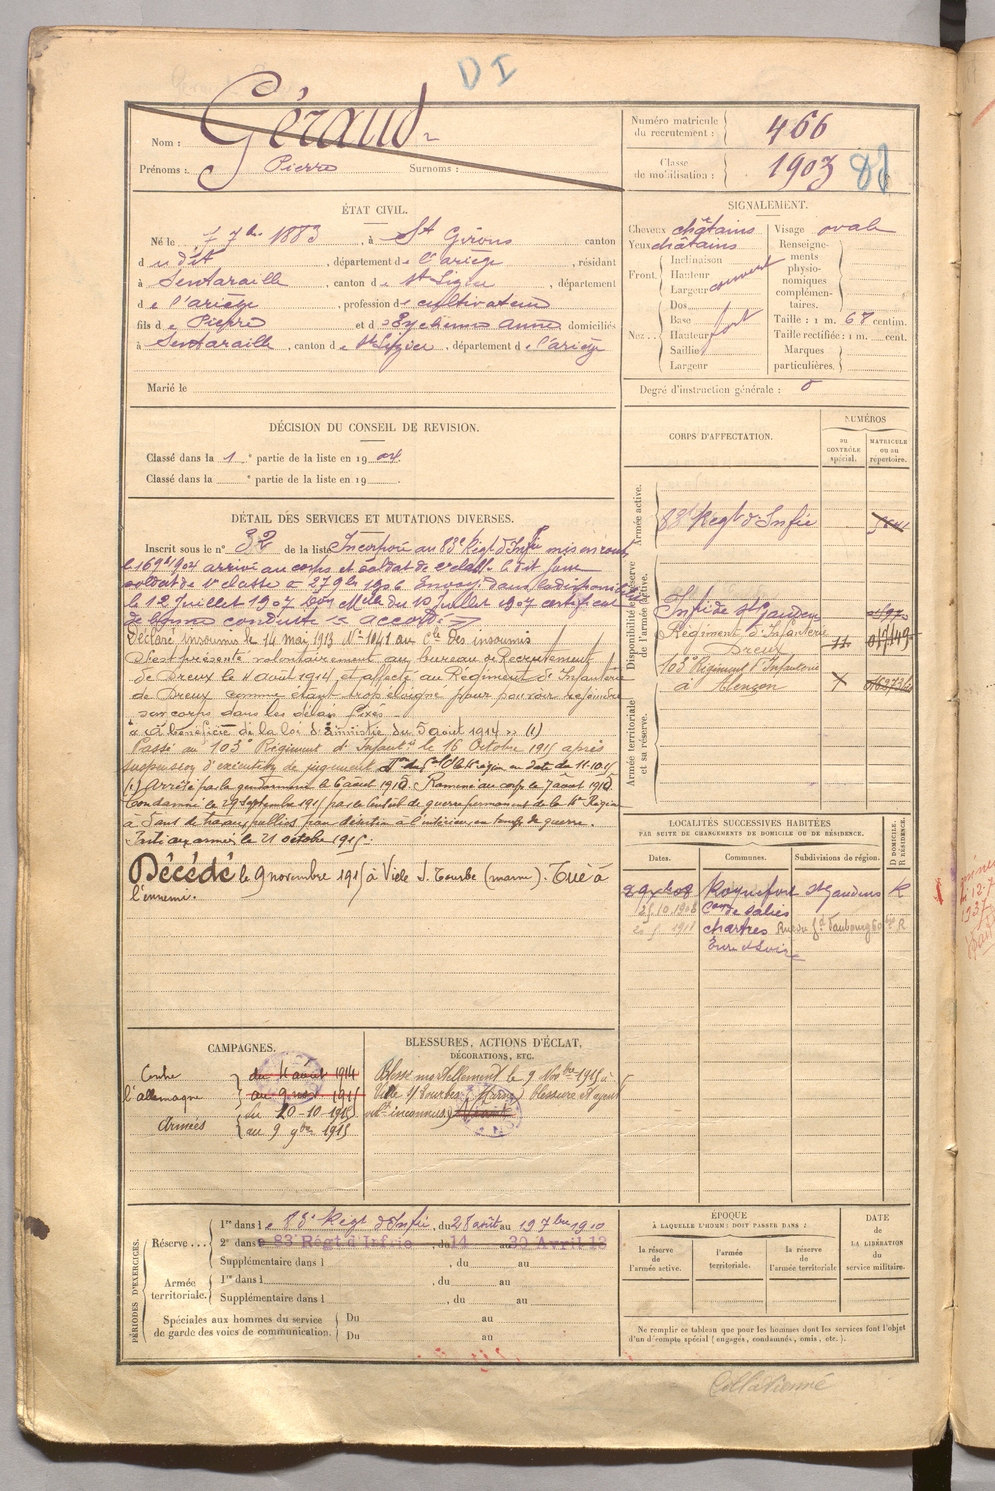 DI
Nom : Géraud
Prénoms : Pierre Surnoms :
Numéro matricule du recrutement : 466
Classe de mobilisation : 1903
ÉTAT CIVIL.
Né le 7 7bre 1883, à St Girons canton
dudit, département de l'ariège, résidant
à Sentaraille, canton de St Lizier, département
de l'ariège, profession de cultivateur
fils de Pierre et d Eychenne Anne domiciliés
à Sentaraille, canton de St Lizier, département de l'ariège
Marié le
SIGNALEMENT.
Cheveux châtains
Yeux châtains
Front. Inclinaison
Hauteur
Largeur couvert
Nez... Dos
Base
Hauteur fort
Saillie
Largeur
Visage ovale
Renseignements physionomiques complémentaires.
Taille : 1 m. 68 centim.
Taille rectifiée : 1 m. cent.
Marques particulières.
Degré d'instruction générale :
DÉCISION DU CONSEIL DE REVISION.
Classé dans la 1e partie de la liste en 1904.
Classé dans la e partie de la liste en 19 .
DÉTAIL DES SERVICES ET MUTATIONS DIVERSES.
Inscrit sous le n° 32 de la liste Incorporé au 83e Régt d'Infie mis en route
le 16 9bre 1904 arrivé au corps et soldat de 2e classe le dit jour
soldat de 1e classe le 27 9bre 1906 Envoyé dans la disponibilité
le 12 Juillet 1907 Don Mlle du 10 juillet 1907 certificat
de bonne conduite "accordé"
Déclaré insoumis le 14 mai 1913 N° 1041 au Cle des insoumis
S'est présenté volontairement au bureau de Recrutement
de Dreux le 4 août 1914 et affecté au Régiment d'Infanterie
de Dreux comme étant trop éloigné pour pouvoir rejoindre
son corps dans les délais fixés.
"a bénéficié de la loi d'amnistie du 5 août 1914" (1)
Passé au 103e Régiment d'Infantie le 16 Octobre 1915 après
suspension d'exécution de jugement du Gal Ct la 4e région en date du 11-10-15
(1) Arrêté par la gendarmerie le 6 août 1915. Ramené au corps le 7 août 1915.
Condamné le 29 Septembre 1915 par le Conseil de guerre permanent de la 4e Région
à 5 ans de travaux publics pour désertion à l'intérieur en temps de guerre.
Parti aux armées le 21 octobre 1915.
Décédé le 9 novembre 1915 à Ville s. Tourbe (marne). Tué à
l'ennemi.
CORPS D'AFFECTATION.
NUMÉROS
DU CONTRÔLE spécial.
MATRICULE OU AU répertoire.
Armée active.
83e Régt d'Infie
Disponibilité et réserve de l'armée active.
Infie de St Gaudens
Régiment d'Infanterie Dreux
103e Régiment d'Infanterie à Alençon
Armée territoriale et sa réserve.
LOCALITÉS SUCCESSIVES HABITÉES
PAR SUITE DE CHANGEMENTS DE DOMICILE OU DE RÉSIDENCE.
Dates. Communes. Subdivisions de région. D DOMICILE. R RÉSIDENCE.
Roquefort St Gaudens R
25.10.1908 Cam de Salies
Chartres Rue du Gd Faubourg 60 R
Eure et Loir
CAMPAGNES.
Contre l'allemagne
du 4 août 1914
au 9 nov 1915
Armées
du 20-10-1915
au 9 9bre 1915
BLESSURES, ACTIONS D'ÉCLAT,
DÉCORATIONS, ETC.
Blessé mortellement le 9 Novbre 1915 à
Ville s/ Tourbe (Marne) blessure n'ayant
inconnues
PÉRIODES D'EXERCICES.
Réserve... 1re dans le 83e Régt d'Infie, du 28 août au 19 7bre 1910
2e dans le 83e Régt d'Infrie, du 14 au 30 Avril 13
Supplémentaire dans l , du au
Armée territoriale. 1re dans l , du au
Supplémentaire dans l , du au
Spéciales aux hommes du service de garde des voies de communication. Du au
Du au
ÉPOQUE
À LAQUELLE L'HOMME DOIT PASSER DANS :
la réserve de l'armée active.
l'armée territoriale.
la réserve de l'armée territoriale
DATE
de
LA LIBÉRATION
du
service militaire.
Ne remplir ce tableau que pour les hommes dont les services font l'objet
d'un décompte spécial (engagés, condamnés, omis, etc.).
Collationné